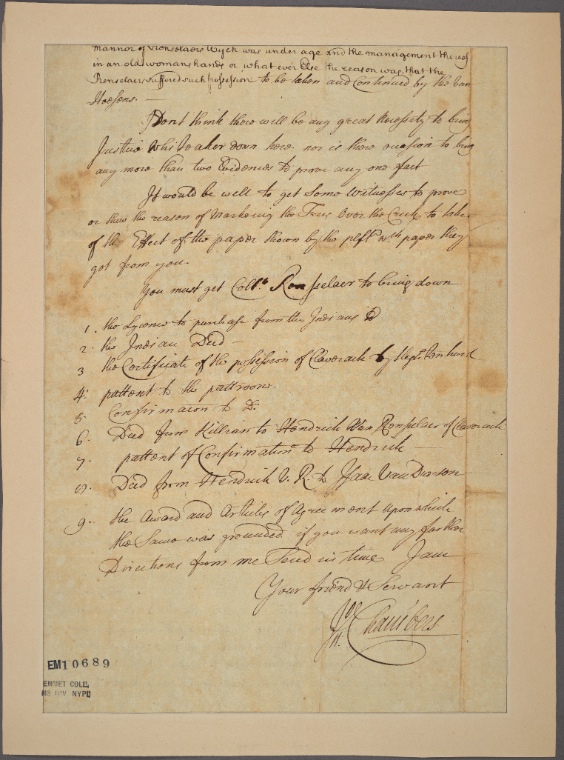 mannor of Renselaers Wyck was under age and the management thereof
in an old womans hands or what ever Else the reason was that the
Renselaers suffered such possession to be taken and Continued by the Van
Hoesens. —
I Dont think there will be any great Necessity to bring
Justice Whitaker down here nor is there occasion to bring
any more than two Evidences to prove any one fact
It would be well to get Some Witnesses to prove
or shew the reason of Marking the Trees Over the Creek to take
of the Effect of the paper shewn by the pltf wch paper they
got from you.
You must get Collo Renselaer to bring down
1. the Lycence to purchase from the Indians
2. the Indian Deed
3 the Certificate of the possession of Claverack by
4. pattent to the pattroon
5. Confirmacon to D.
6. Deed from Killian to Hendrick Van Renselaer of Claverack
7. pattent of Confirmation to Hendrick
8. Deed from Hendrick V. R. to Isaac Van Durson
9. the Award and Articles of Agreement upon which
the Same was grounded if you want any further
Directions from me Send in time I am
Your friend & Servant
Jn. Chambers
EM10689
EMMET COLL.
NYPL